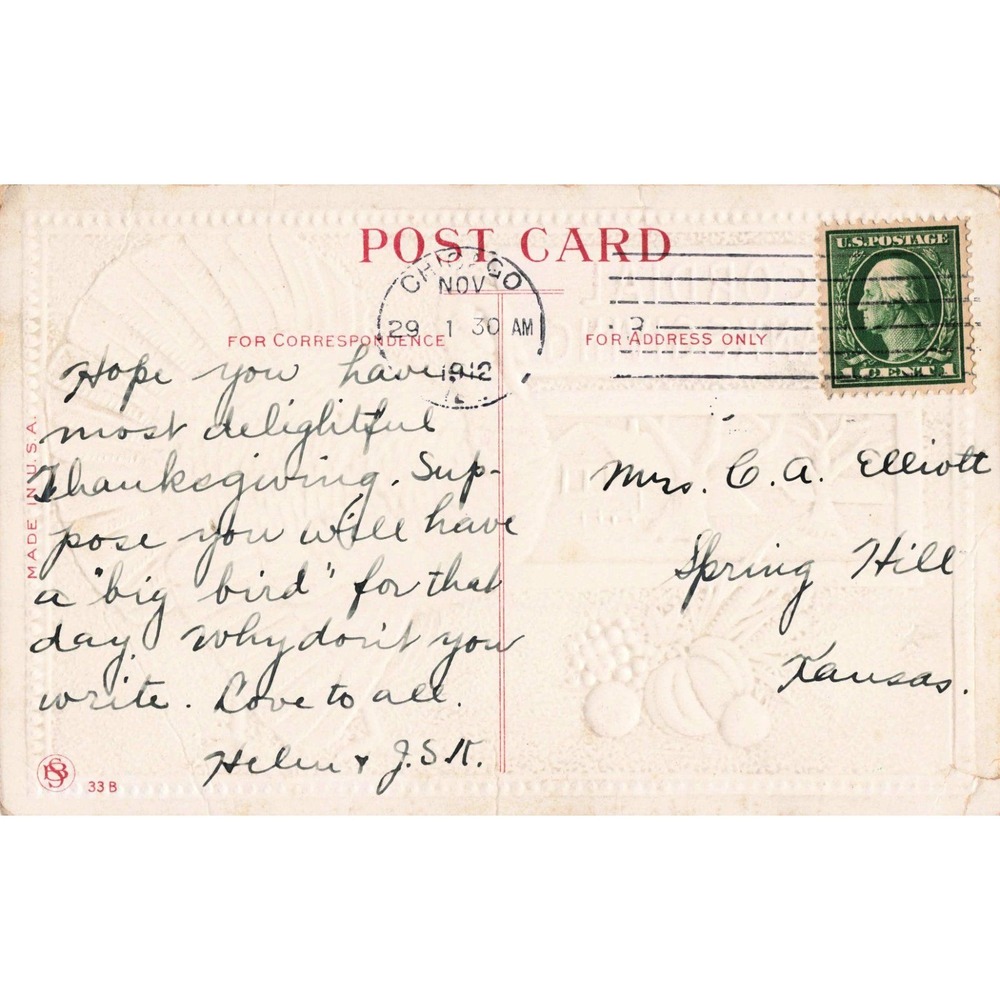 POST CARD
CHICAGO
NOV
29 1 30 AM
1912
U.S.POSTAGE
1 CENT 1
FOR CORRESPONDENCE
FOR ADDRESS ONLY
MADE IN U.S.A.
Hope you have a
most delightful
Thanksgiving. Sup-
pose you will have
a "big bird" for that
day. Why don't you
write. Love to all.
Helen + J.S.K.
Mrs. C. A. Elliott
Spring Hill
Kansas.
33 B